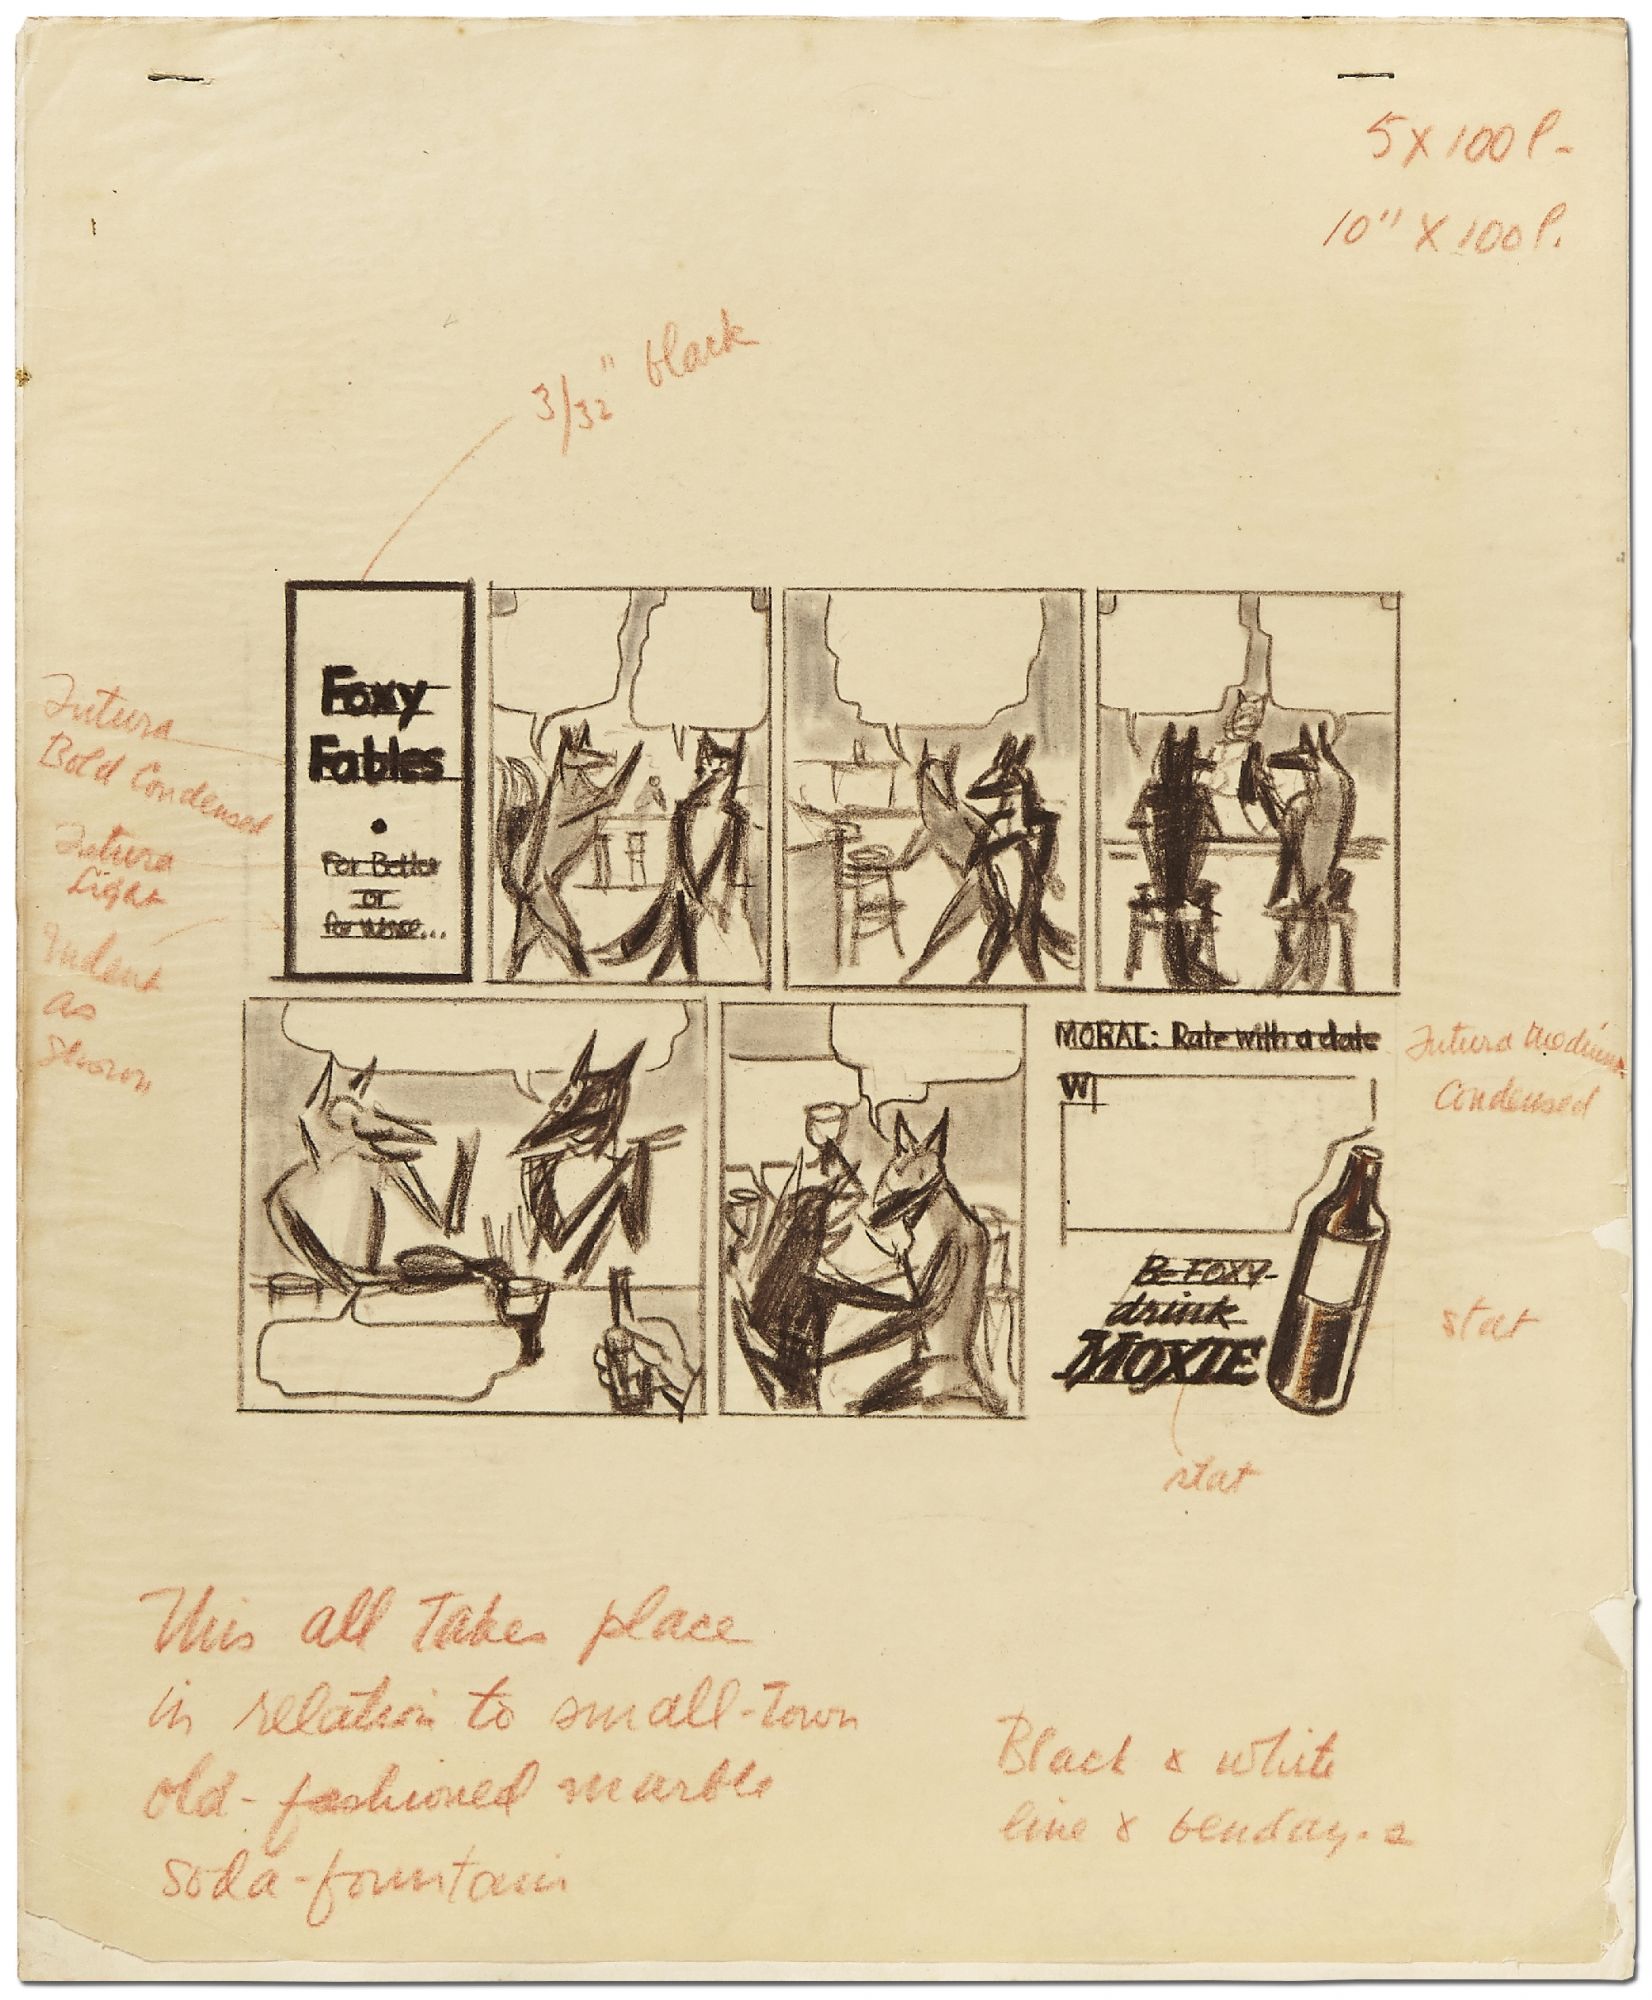 5 X 100 l. -
10" X 100 l.
3/32" black
Futura
Bold Condensed
Futura
Light
Indent
as
Shown
Foxy
Fables
•
For Better
or
for worse...
MORAL: Rate with a date
W
Futura Medium
Condensed
B-FOXY-
drink
MOXIE
stat
stat
This all Takes place
in relation to small-Town
old-fashioned marble
soda-fountain
Black & white
line & benday.